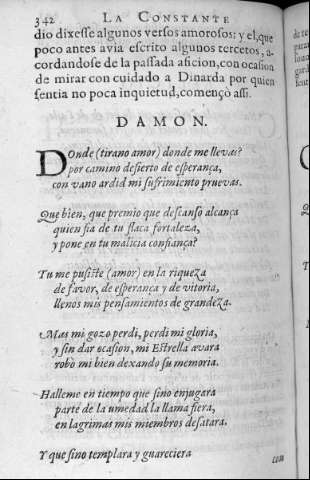 342 LA CONSTANTE
dio dixesse algunos versos amorosos: y el, que
poco antes avia escrito algunos tercetos, a-
cordandose de la passada aficion, con ocasion
de mirar con cuidado a Dinarda por quien
sentia no poca inquietud, començò assi.
DAMON.
DOnde (tirano amor) donde me llevas?
por camino desierto de esperança,
con vano ardid mi sufrimiento pruevas.
Que bien, que premio que descanso alcança
quien fia de tu flaca fortaleza,
y pone en tu malicia confiança?
Tu me pusiste (amor) en la riqueza
de favor, de esperança y de vitoria,
llenos mis pensamientos de grandeza.
Mas mi gozo perdi, perdi mi gloria,
y sin dar ocasion, mi Estrella avara
robò mi bien dexando su memoria.
Halleme en tiempo que sino enjugara
parte de la umedad la llama fiera,
en lagrimas mis miembros desatara.
Y que sino templara y guareciera
con